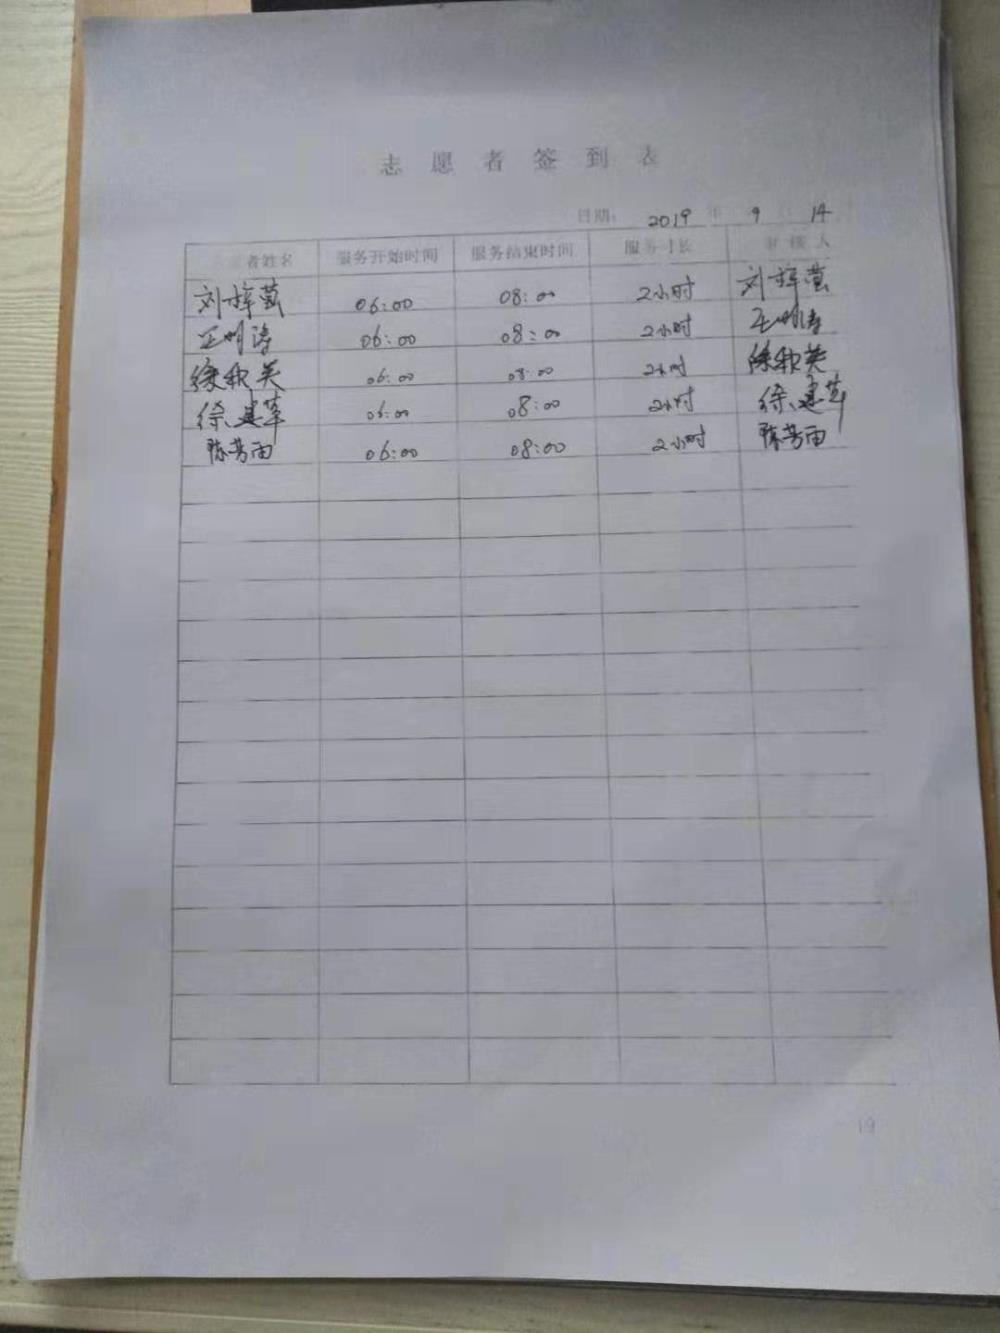 志愿者签到表
日期: 2019 年 9 14
者姓名 服务开始时间 服务结束时间 服务时长 审核人
刘梓莹 06:00 08:00 2小时 刘梓莹
王明涛 06:00 08:00 2小时 王明涛
徐秋英 06:00 08:00 2小时 徐秋英
徐建华 06:00 08:00 2小时 徐建华
陈芳雨 06:00 08:00 2小时 陈芳雨
19